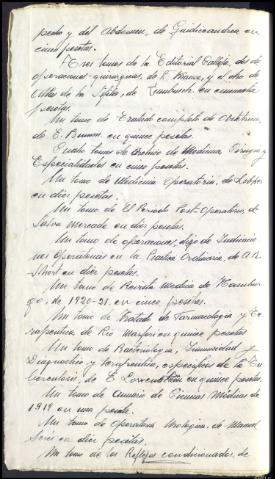 pecho y del Abdomen, de Guidiceandrea en
cinco pesetas.
Tres tomos de la Editorial Calleja, dos de
operaciones quirurgicas, de R. Blanco, y el otro de
de la Sifilis, de en cincuenta
pesetas.
Un tomo de Tratado completo de Obstetricia,
de E. Bumm, en quince pesetas
tomos de Medicina Cirugia y
Especialidades en cinco pesetas.
Un tomo de Medicina Operatoria, de
en diez pesetas.
Un tomo de El Periodo Post-Operatorio, de
Salva Mercadé en diez pesetas.
Un tomo de operaciones, digo de Indicacio
nes operatorias en la Practica Ordinaria, de A. B.
en diez pesetas.
Un tomo de Revista Medica de Hambur
go, de 1920-21. en cinco pesetas.
Un tomo de Tratado de Farmacologia y Te
rapeutica de en quince pesetas
Un tomo de Bacteriologia, Inmunidad y
Diagnostico y especificos de la Tu
berculosis, de E. Lowenstein en quince pesetas.
Un tomo de Anuario de Ciencias Médicas de
1919 en una peseta.
Un tomo de Operatoria Urologica, de Manuel
Serés en diez pesetas.
Un tomo de los Reflejos condicionados, de